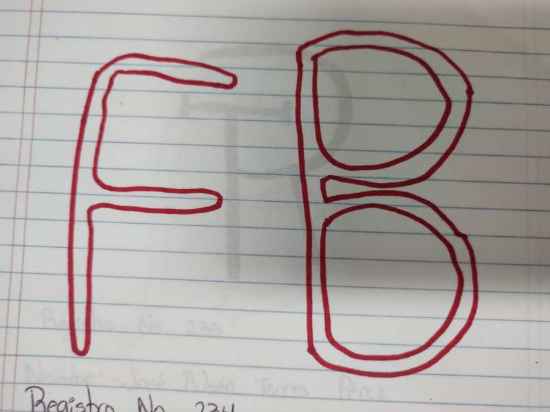 FB
Registro No. 234